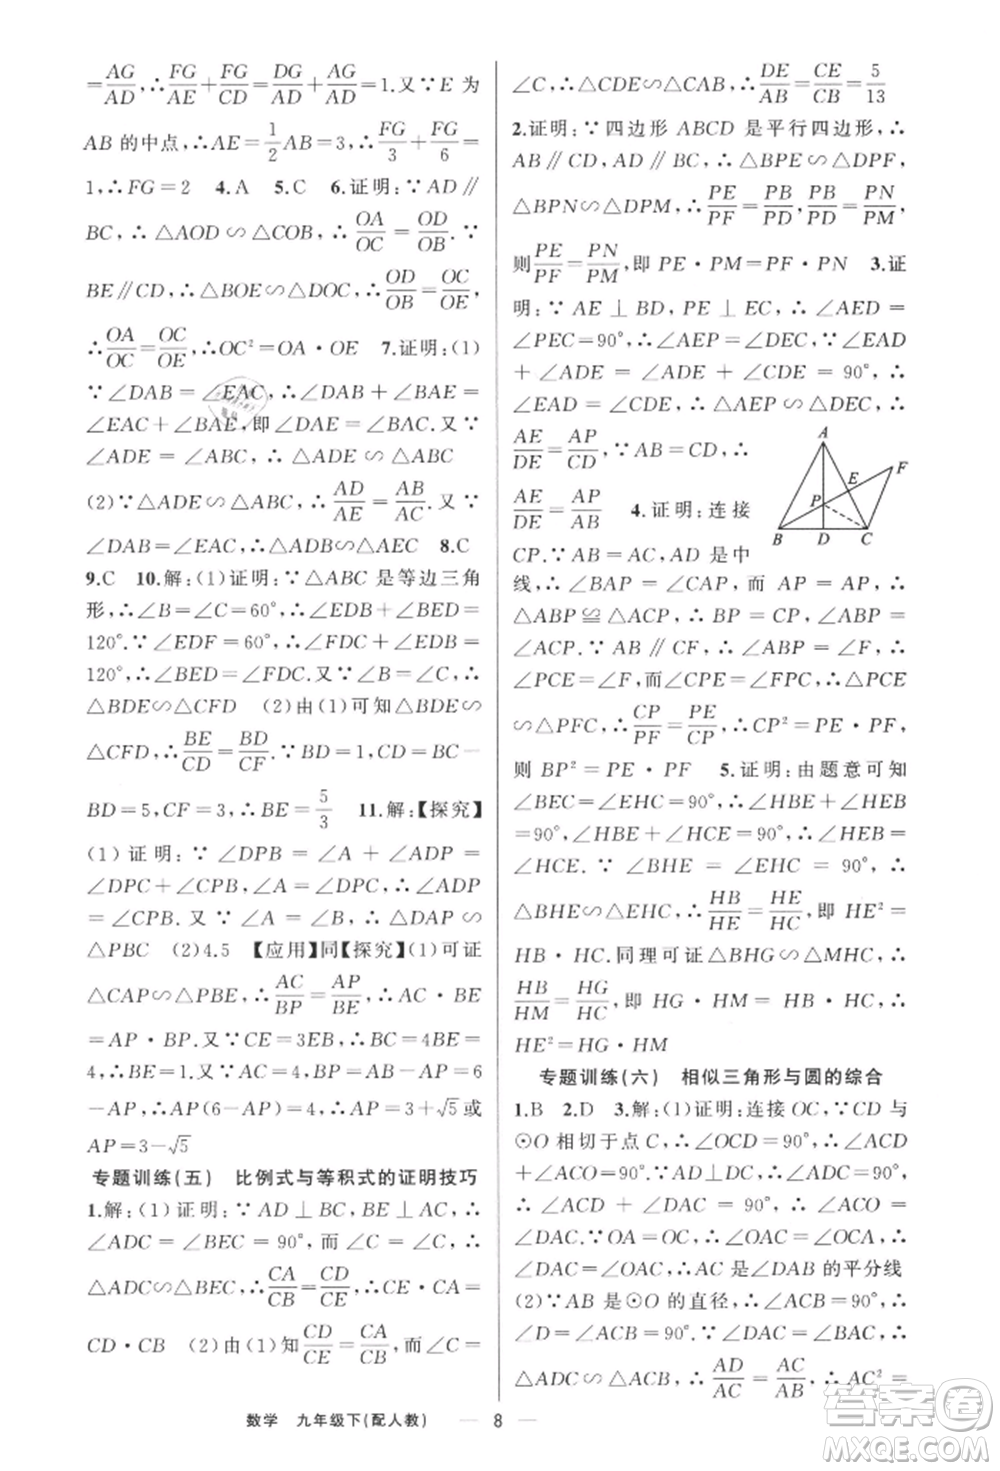 =AG/AD,∴FG/AE+FG/CD=DG/AD+AG/AD=1.又∵E 为
AB的中点,∴AE=1/2AB=3,∴FG/3+FG/6=
1,∴FG=2 4.A 5.C 6.证明:∵AD∥
BC,∴△AOD∽△COB,∴OA/OC=OD/OB.∵
BE∥CD,∴△BOE∽△DOC,∴OD/OB=OC/OE,
∴OA/OC=OC/OE,∴OC²=OA·OE 7.证明:(1)
∵∠DAB=∠EAC,∴∠DAB+∠BAE=
∠EAC+∠BAE,即∠DAE=∠BAC.又∵
∠ADE=∠ABC,∴△ABC∽△ADE
(2)∵△ADE∽△ABC,∴AD/AE=AB/AC.又∵
∠DAB=∠EAC,∴△ADB∽△AEC 8.C
9.C 10.解:(1)证明:∵△ABC是等边三角
形,∴∠B=∠C=60°,∴∠EDB+∠BED=
120°.∵∠EDF=60°,∴∠FDC+∠EDB=
120°,∴∠BED=∠FDC.又∵∠B=∠C,∴
△BDE∽△CFD (2)由(1)可知△BDE∽
△CFD,∴BE/CD=BD/CF.∵BD=1,CD=BC-
BD=5,CF=3,∴BE=5/3 11.解:【探究】
(1)证明:∵∠DPB=∠A+∠ADP=
∠DPC+∠CPB,∠A=∠DPC,∴∠ADP
=∠CPB.又∵∠A=∠B,∴△DAP∽
△PBC (2)4.5 【应用】同【探究】(1)可证
△CAP∽△PBE,∴AC/BP=AP/BE,∴AC·BE
=AP·BP.又∵CE=3BE,∴BC=4BE=
4,∴BE=1.又∵AC=4,BP=AB-AP=6-
AP,∴4=AP(6-AP),∴AP=3+√5或
AP=3-√5
专题训练(五) 比例式与等积式的证明技巧
1.解:(1)证明:∵AD⊥BC,BE⊥AC,∴
∠ADC=∠BEC=90°,而∠ACD=∠BCE,∴
△ADC∽△BEC,∴CA/CB=CD/CE,∴CE·CA=
CD·CB (2)由(1)知CD/CE=CA/CB,而∠C=
∠C,∴△CDE∽△CAB,∴DE/AB=CE/CB=5/13
2.证明:∵四边形ABCD是平行四边形,∴
AB∥CD,AD∥BC,∴△BPE∽△DPF,
△BPN∽△DPM,∴PE/PF=PB/PD,PB/PD=PN/PM,
则PE/PF=PN/PM,即PE·PM=PF·PN 3.证
明:∵AE⊥BD,PE⊥EC,∴∠AED=
∠PEC=90°,∴∠AEP=∠DEC,∵∠EAD
+∠ADE=∠ADE+∠CDE=90°,∴
∠EAD=∠CDE,∴△AEP∽△DEC,∴
AE/DE=AP/CD,∵AB=CD,∴
AE/DE=AP/AB 4.证明:连接
CP.∵AB=AC,AD是中
线,∴∠BAP=∠CAP,而AP=AP,∴
△ABP≌△ACP,∴BP=CP,∠ABP=
∠ACP.∵AB∥CF,∴∠ABP=∠F,∴
∠PCE=∠F,而∠EPC=∠FPC,∴△PCE
∽△PFC,∴CP/PF=PE/CP,∴CP²=PE·PF,
则BP²=PE·PF 5.证明:由题意可知
∠BEC=∠EHC=90°,∴∠HBE+∠HEB
=90°,∠HBE+∠HCE=90°,∴∠HEB=
∠HCE.∵∠BHE=∠EHC=90°,∴
△BHE∽△EHC,∴HB/HE=HE/HC,即HE²=
HB·HC.同理可证△BHG∽△MHC,∴
HB/HM=HG/HC,即HG·HM=HB·HC,∴
HE²=HG·HM
A
E
F
P
B
D
C
专题训练(六) 相似三角形与圆的综合
1.B 2.D 3.解:(1)证明:连接OC,∵CD与
⊙O相切于点C,∴∠OCD=90°,∴∠ACD
+∠ACO=90°,∵∠ADC=90°,∴∠ACD+
∠DAC=90°,∴∠ACO=∠DAC.
∵OA=OC,∴∠OAC=∠OCA,∴
∠DAC=∠OAC,∴AC是∠DAB的平分线
(2)∵AB是⊙O的直径,∴∠ACB=90°,∴
∠D=∠ACB=90°.∵∠DAC=∠BAC,∴
△ADC∽△ACB,∴AD/AC=AC/AB,∴AC²=
数学 九年级下(配人教) — 8 —
答案圈
MXQE.COM